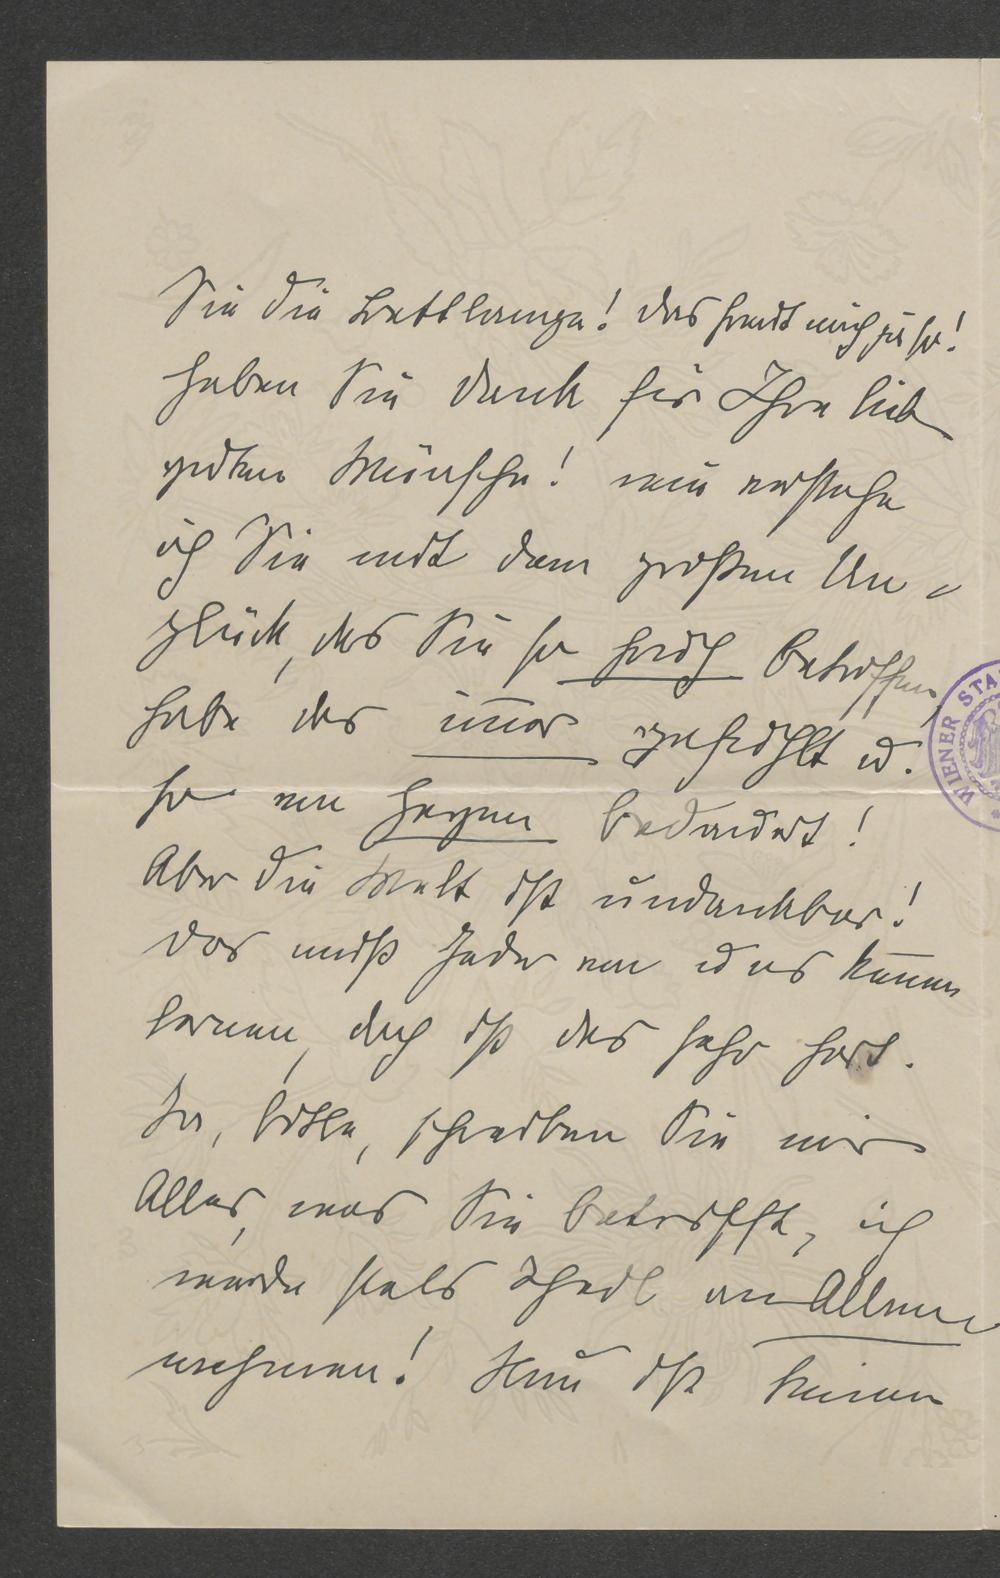 Sie die Bettlampe! das freut mich ja so!
haben Sie Dank für Ihre lieb
guten Wünsche! wie verstehe
ich Sie mit dem großen Un-
glück, das Sie so betroffen,
habe das immer gefühlt u.
so von Herzen bedauert!
Aber die Welt ist undankbar!
das muß Jeder von uns kennen
lernen, doch ist das sehr hart.
Ja, bitte, schreiben Sie mir
Alles, was Sie betrifft, ich
werde stets Theil an Allem
nehmen! Nun ist
WIENER STA